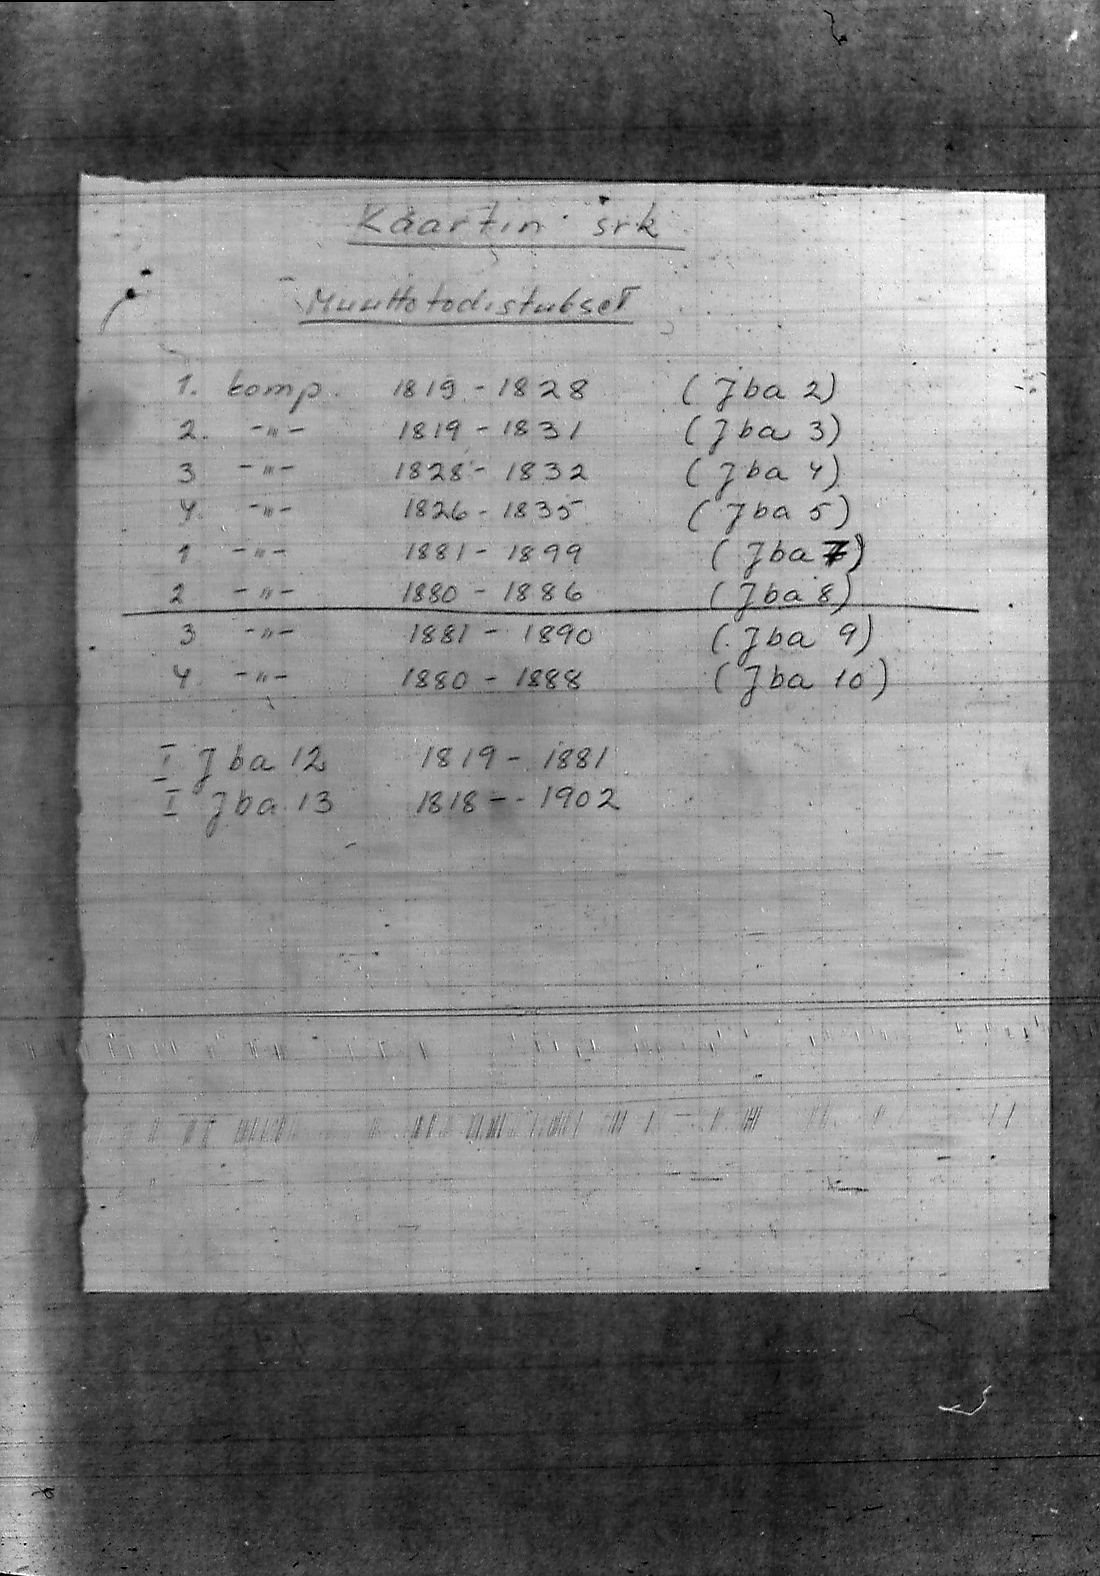 Kaartin srk
Muuttotodistukset
1. komp. 1819 - 1828 (Jba 2)
2. -"- 1819 - 1831 (Jba 3)
3 -"- 1828 - 1832 (Jba 4)
4. -"- 1826 - 1835 (Jba 5)
1 -"- 1881 - 1899 (Jba 7)
2 -"- 1880 - 1886 (Jba 8)
3 -"- 1881 - 1890 (Jba 9)
4 -"- 1880 - 1888 (Jba 10)
I Jba 12 1819 - 1881
I Jba 13 1818 - - 1902